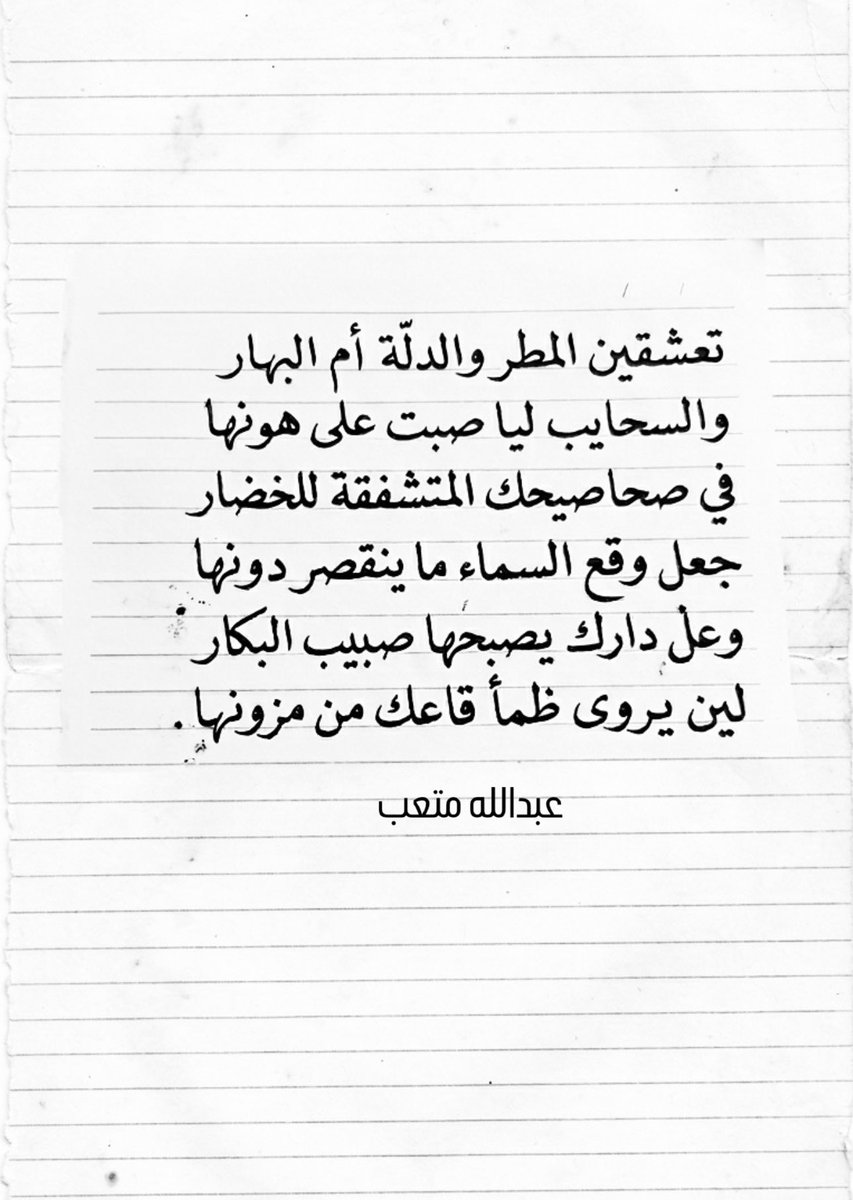 تعشقين المطر والدلّة أم البهار
والسحايب ليا صبت على هونها
في صحاصيحك المتشفقة للخضار
جعل وقع السماء ما ينقصر دونها
وعل دارك يصبحها صبيب البكار
لين يروى ظمأ قاعك من مزونها .
عبدالله متعب